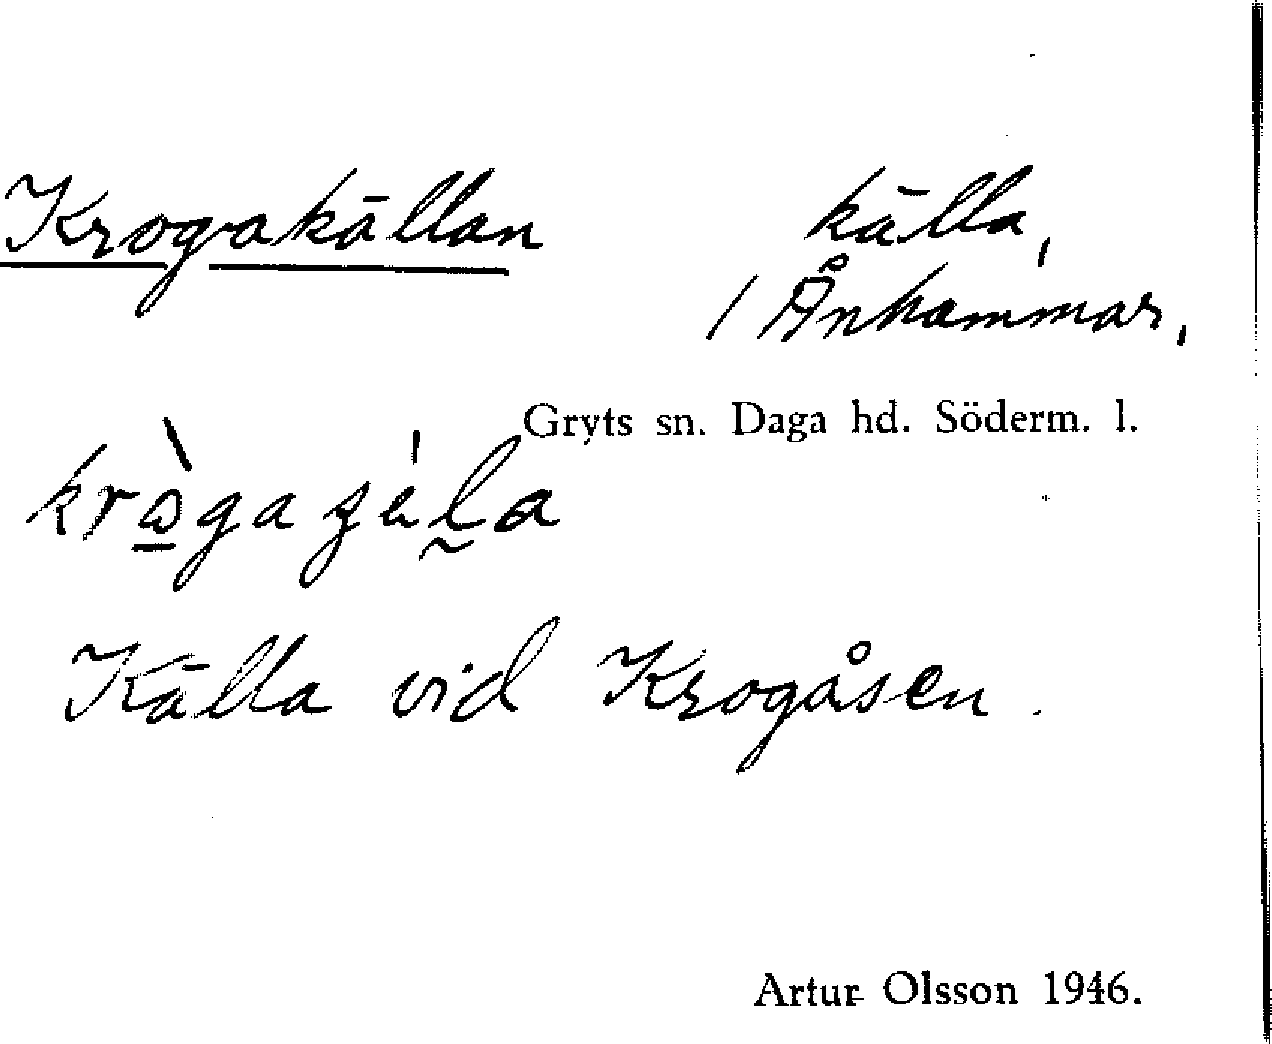 Krogakällan källa,
/ Ånhammar,
Gryts sn. Daga hd. Söderm. l.
Källa vid Krogåsen.
Artur Olsson 1946.